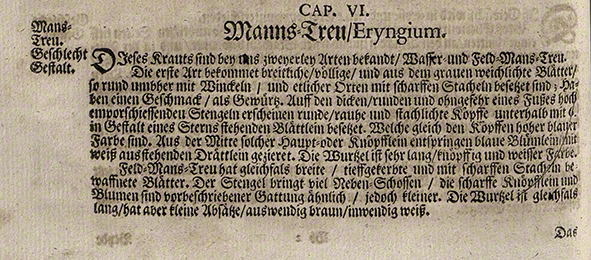 CAP. VI.
Manns-Treu/Eryngium.
Mans-
Treu.
Geschlecht
Gestalt.
DIeses Krauts sind bey uns zweyerley Arten bekandt/ Wasser-und Feld-Mans-Treu.
Die erste Art bekommet breitliche/völlige/ und aus dem grauen weichlichte Blätter/
so rund umbher mit Winckeln / und etlicher Orten mit scharffen Stacheln besetzet sind ; Ha-
ben einen Geschmack / als Gewürtz. Auff den dicken/runden und ohngefehr eines Fußes hoch
emporschiessenden Stengeln erscheinen runde/rauhe und stachlichte Köpffe unterhalb mit 6.
in Gestalt eines Sterns stehenden Blättlein besetzet. Welche gleich den Köpffen hoher blauer
Farbe sind. Aus der Mitte solcher Haupt-oder Knöpfflein entspringen blaue Blümlein/mit
weiß ausstehenden Drättlein gezieret. Die Wurtzel ist sehr lang/knöpffig und weisser Farbe.
Feld-Mans-Treu hat gleichfals breite / tieffgekerbte und mit scharffen Stacheln be-
waffnete Blätter. Der Stengel bringt viel Neben-Schossen / die scharffe Knöpfflein und
Blumen sind vorbeschriebener Gattung ähnlich / jedoch kleiner. Die Wurtzel ist gleichfals
lang/hat aber kleine Absätze/auswendig braun/inwendig weiß.
Das